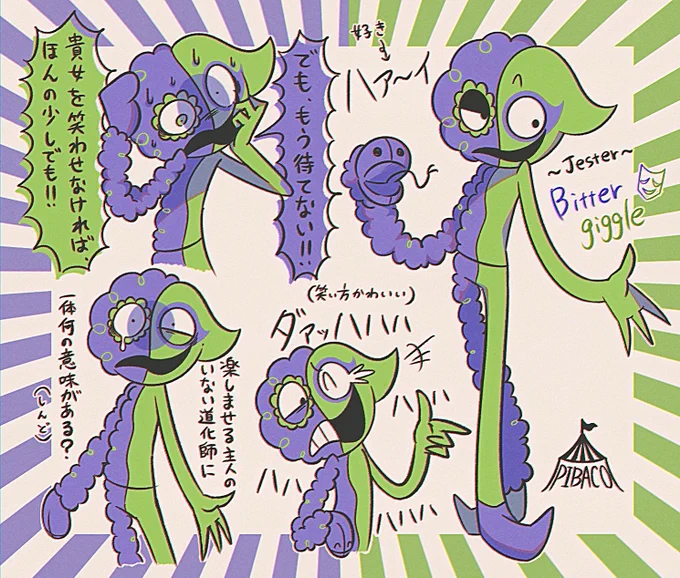 貴女を笑わせなければ、
ほんの少しでも!!
でも、もう待てない!!
好き
ハア〜イ
~Jester~
Bitter
giggle
一体何の意味がある?
(しんど)
楽しませる主人の
いない道化師に
(笑い方かわいい)
ダァッハハハ
ハハハ
ハハ
ハハハ
PIBACO